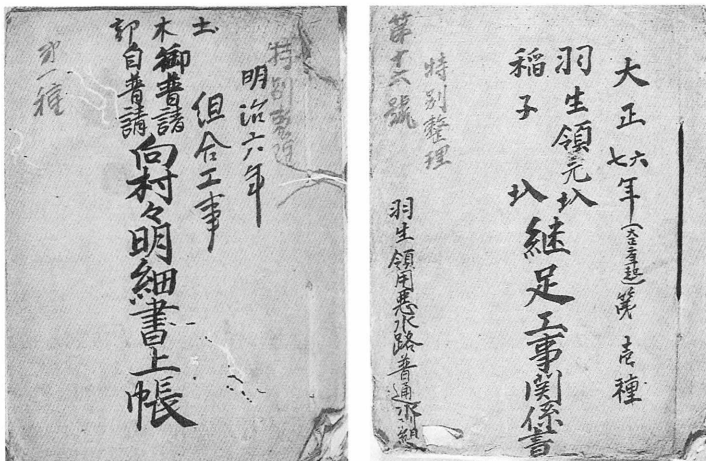 特別整理
明治六年
土木部
組合工事
御普請
自普請
向村々明細書上帳
第一種
大正七六年
第壱種
羽生領元圦
稲子圦
継足工事関係書
特別整理
第十六號
羽生領用悪水路普通水利組